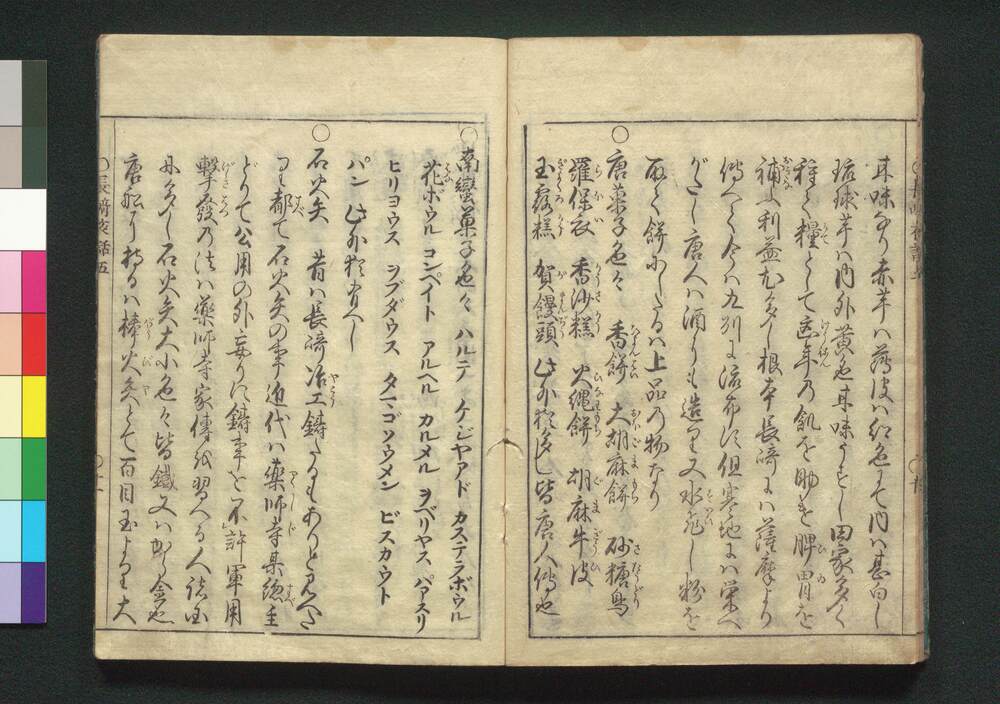 其味なり赤芋ハ薄皮ハ紅色にて内ハ甚白し
琉球芋ハ内外黄色其味うすし田家多く
種て糧として凶年乃飢を助を脾胃を
補ふ利益尤多し根本長崎にハ薩摩より
傳へて今ハ九州に流布す但寒地にハ栄へ
がたし唐人ハ酒にも造り又水飛し粉を
取て餅にしたるハ上品乃物なり
○唐菓子色々 香餅 大胡麻餅 砂糖鳥
羅保衣 香沙糕 火縄餅 胡麻牛皮
玉露糕 賀饅頭 此外猶多し皆唐人傳也
○南蠻菓子色々 ハルテ ケジヤアド カステラボウル
花ボウル コンペイト アルヘル カルメル ヲベリヤス パアスリ
ヒリヨウス ヲブダウス タマゴソウメン ビスカウト
パン 此外猶有へし
○石火矢 昔ハ長崎冶工鑄たるもありと見へた
り都て石火矢の事近代ハ藥師寺某總主
どりて公用の外妄りに鑄事を不許軍用
撃發乃法ハ藥師寺家傳を習へる人諸国
に多し石火矢大小色々皆鐵又ハから金也
唐船に持るハ棒火矢とて百目玉より大
○長崎夜話五